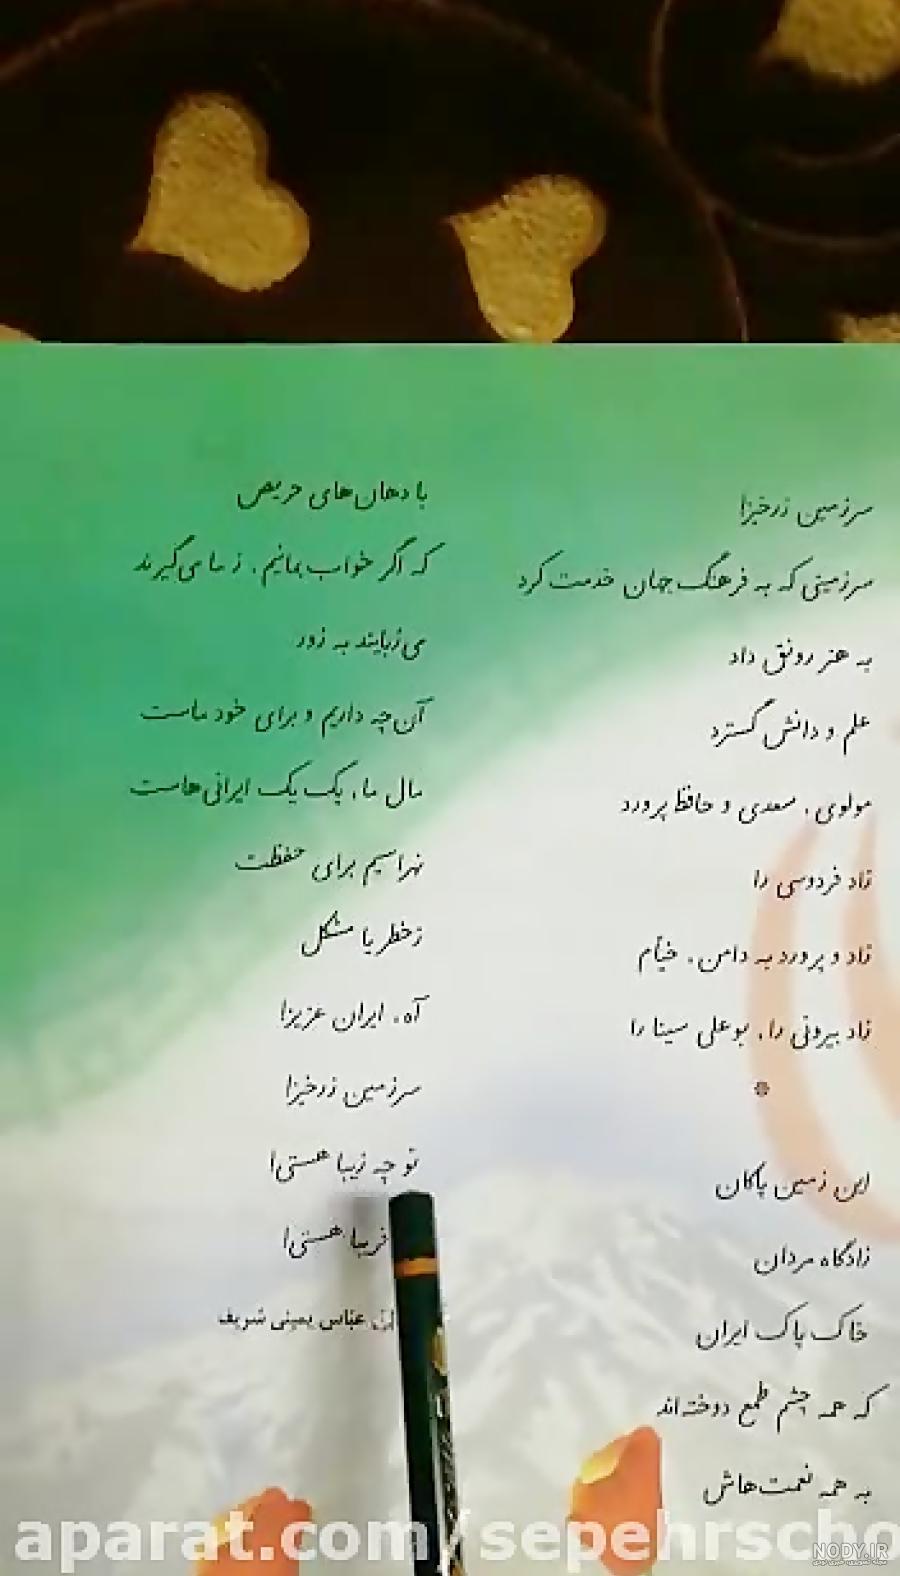 سرزمین زرخیزا
سرزمینی که به فرهنگ جهان خدمت کرد
به هنر رونق داد
علم و دانش گسترد
مولوی، سعدی و حافظ پرورد
زاد فردوسی را
زاد و پرورد به دامن، خیّام
زاد بیرونی را، بوعلی سینا را
این زمین پاکان
زادگاه مردان
خاک پاک ایران
که همه چشم طمع دوخته‌اند
به همه نعمت‌هاش
با دهان‌های حریص
که اگر خواب بمانیم، ز ما می‌گیرند
می‌ربایند به زور
آن‌چه داریم و برای خود ماست
مال ما، یک یک ایرانی‌هاست
نهراسیم برای حفظت
ز خطر یا مشکل
آه، ایران عزیزا
سرزمین زرخیزا
تو چه زیبا هستی!
فریبا هستی!
عبّاس یمینی شریف
aparat.com/sepehrscho
NODY.IR